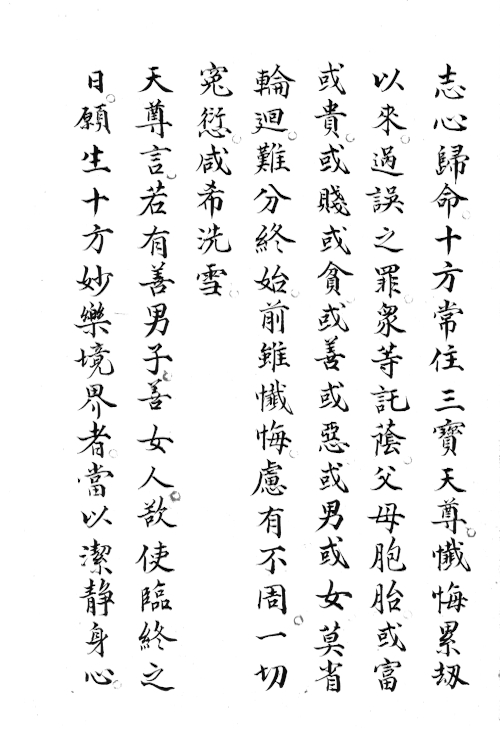 志心歸命十方常住三寶天尊懺悔累劫
以來過誤之罪衆等託蔭父母胞胎或富
或貴或賤或貧或善或惡或男或女莫省
輪迴難分終始前雖懺悔慮有不周一切
冤愆咸希洗雪
天尊言若有善男子善女人欲使臨終之
日願生十方妙樂境界者當以潔靜身心